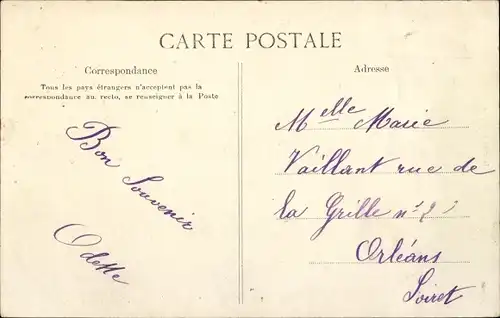 CARTE POSTALE
Correspondance
Tous les pays étrangers n'acceptent pas la
correspondance au recto, se renseigner à la Poste
Bon Souvenir
Odette
Adresse
Melle Marie
Vaillant rue de
la Grille n°
Orléans
Loiret